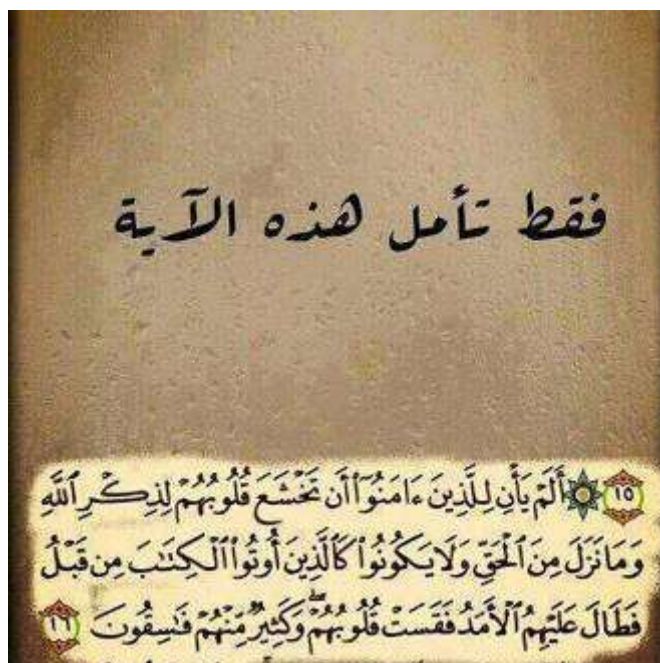 فقط تأمل هذه الآية
١٥ ۞ أَلَمْ يَأْنِ لِلَّذِينَ ءَامَنُوٓا۟ أَن تَخْشَعَ قُلُوبُهُمْ لِذِكْرِ ٱللَّهِ
وَمَا نَزَلَ مِنَ ٱلْحَقِّ وَلَا يَكُونُوا۟ كَٱلَّذِينَ أُوتُوا۟ ٱلْكِتَٰبَ مِن قَبْلُ
فَطَالَ عَلَيْهِمُ ٱلْأَمَدُ فَقَسَتْ قُلُوبُهُمْ ۖ وَكَثِيرٌ مِّنْهُمْ فَٰسِقُونَ ١٦